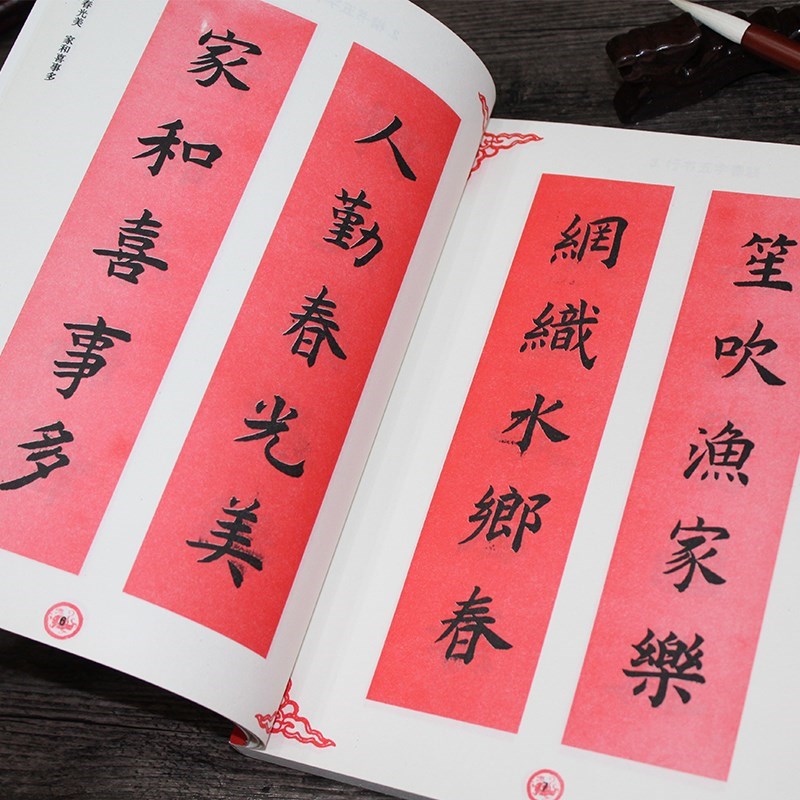 春光美 家和喜事多
人勤春光美
家和喜事多
6
笙吹漁家樂
網織水鄉春
7